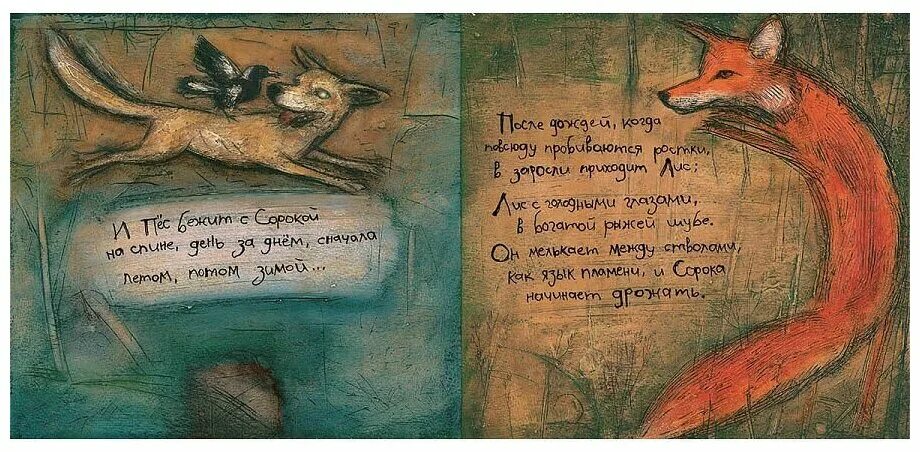 И Пёс бежит с Сорокой
на спине, день за днём, сначала
летом, потом зимой...
После дождей, когда
повсюду пробиваются ростки,
в заросли приходит Лис;
Лис с голодными глазами,
в богатой рыжей шубе.
Он мелькает между стволами,
как язык пламени, и Сорока
начинает дрожать.